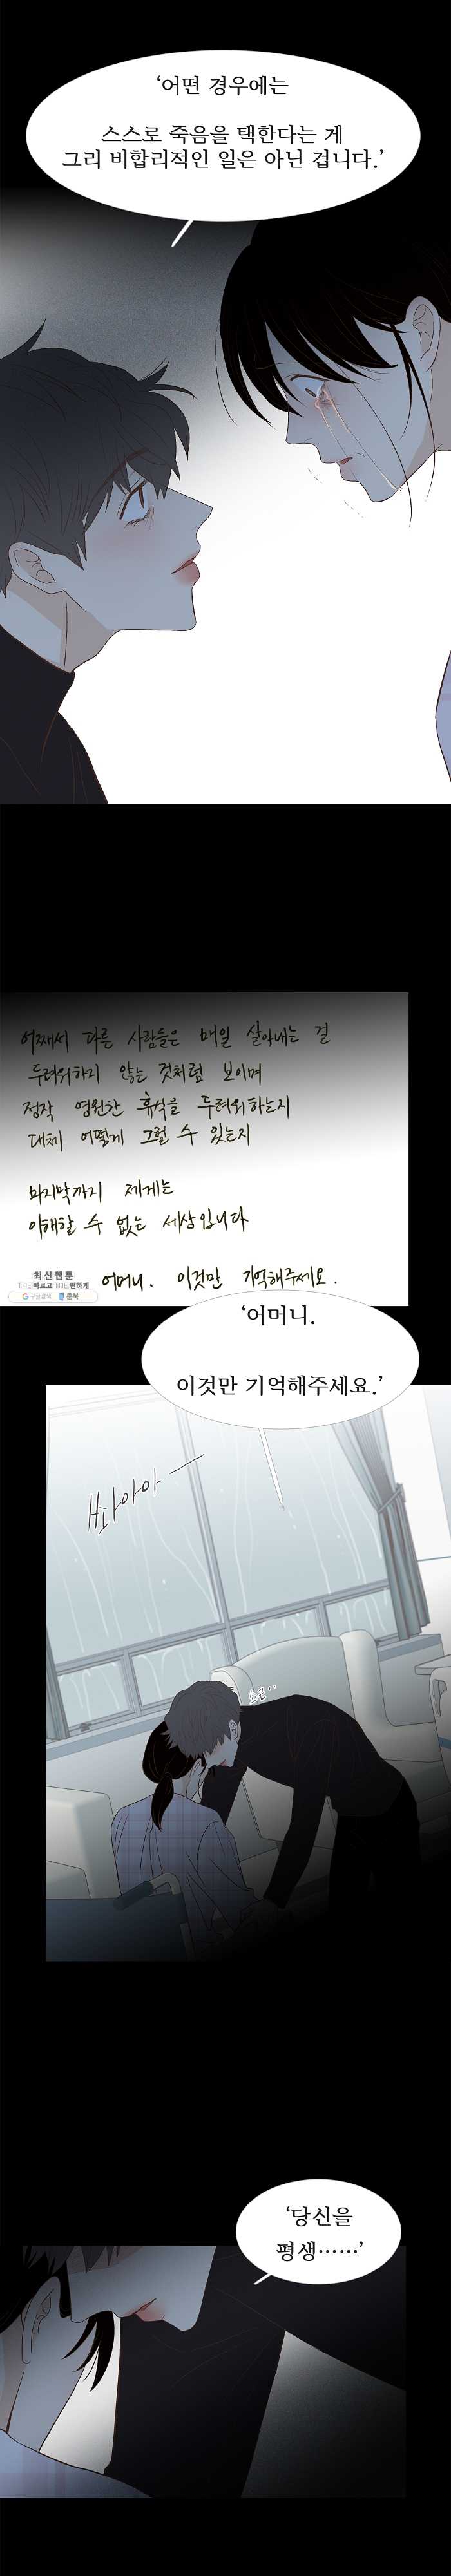 ‘어떤 경우에는
스스로 죽음을 택한다는 게
그리 비합리적인 일은 아닌 겁니다.’
어째서 다른 사람들은 매일 살아내는 걸
두려워하지 않는 것처럼 보이며
정작 영원한 휴식을 두려워하는지
대체 어떻게 그럴 수 있는지
마지막까지 제게는
이해할 수 없는 세상입니다
어머니. 이것만 기억해주세요.
최신웹툰
THE빠르고 THE편하게
구글검색 툰북
‘어머니.
이것만 기억해주세요.’
쏴아아
스륵..
‘당신을
평생……’